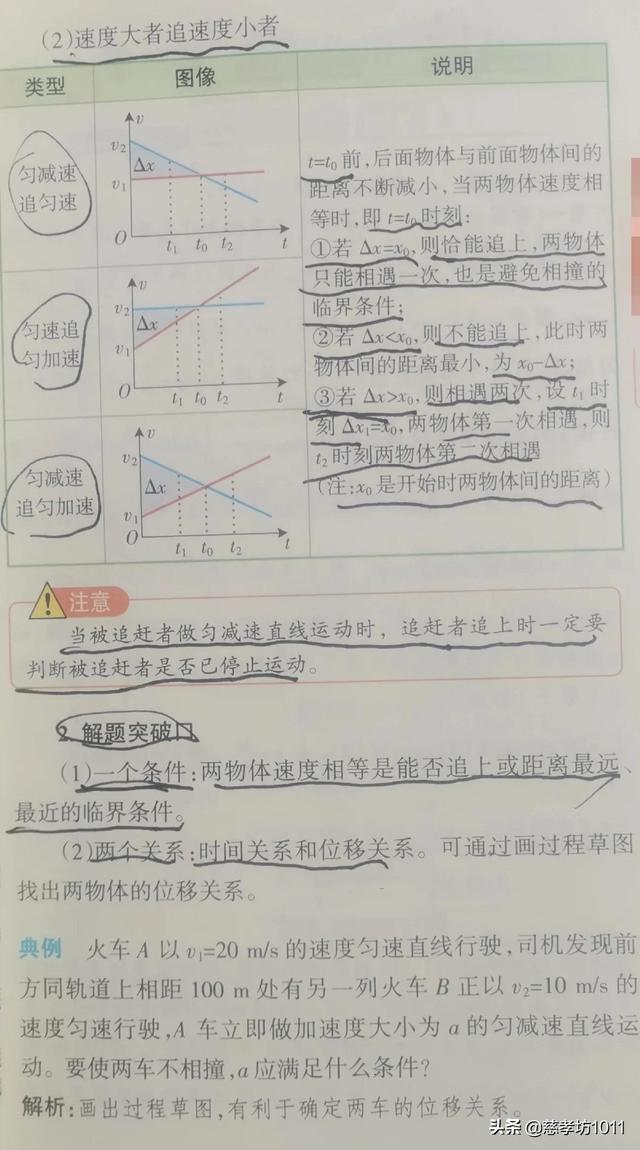 (2)速度大者追速度小者
类型
图像
说明
匀减速
追匀速
v
v2
Δx
v1
O
t1
t0
t2
t
t=t0前,后面物体与前面物体间的
距离不断减小,当两物体速度相
等时,即 t=t0时刻:
①若 Δx=x0,则恰能追上,两物体
只能相遇一次,也是避免相撞的
临界条件;
匀速追
匀加速
v
v2
Δx
v1
O
t1
t0
t2
t
②若 Δx<x0,则不能追上,此时两
物体间的距离最小,为x0-Δx;
③若 Δx>x0,则相遇两次,设t1时
刻Δx1=x0,两物体第一次相遇,则
t2时刻两物体第二次相遇
(注:x0是开始时两物体间的距离)
匀减速
追匀加速
v
v2
Δx
v1
O
t1
t0
t2
t
注意
当被追赶者做匀减速直线运动时，追赶者追上时一定要
判断被追赶者是否已停止运动。
2.解题突破口
(1)一个条件:两物体速度相等是能否追上或距离最远、
最近的临界条件。
(2)两个关系:时间关系和位移关系。可通过画过程草图
找出两物体的位移关系。
典例 火车A以v1=20 m/s的速度匀速直线行驶,司机发现前
方同轨道上相距100 m处有另一列火车B正以v2=10 m/s的
速度匀速行驶,A车立即做加速度大小为a的匀减速直线运
动。要使两车不相撞,a应满足什么条件?
解析:画出过程草图,有利于确定两车的位移关系。
头条 @慈孝坊1011